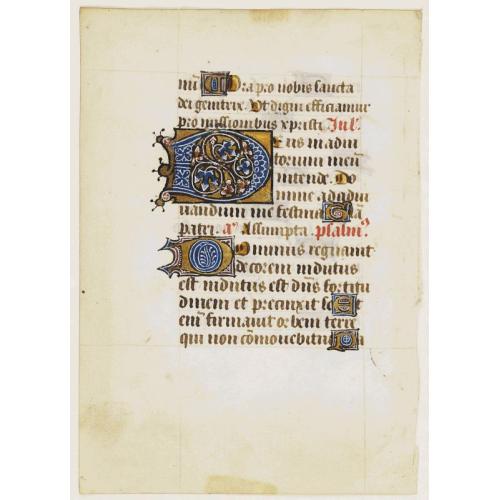 nū Ora pro nobis sancta
dei genitrix. Vt digni efficiamur
promissionibus xpristi. Jul.
Deus in adiu
torium meū
intende. Do
mine ad adiu
uandum me festina Glā
patri. aā Assumpta. psalm9
Dominus regnauit
decorem indutus
est indutus est dn̄s fortitu
dinem et precinxit se Et
enī firmauit orbem terre
qui non cōmouebitur